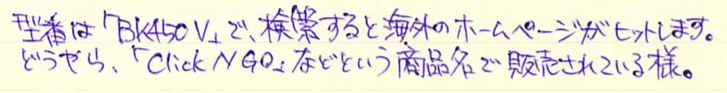 型番は「BK450V」で、検索すると海外のホームページがヒットします。
どうやら、「Click N GO」などという商品名で販売されている様。